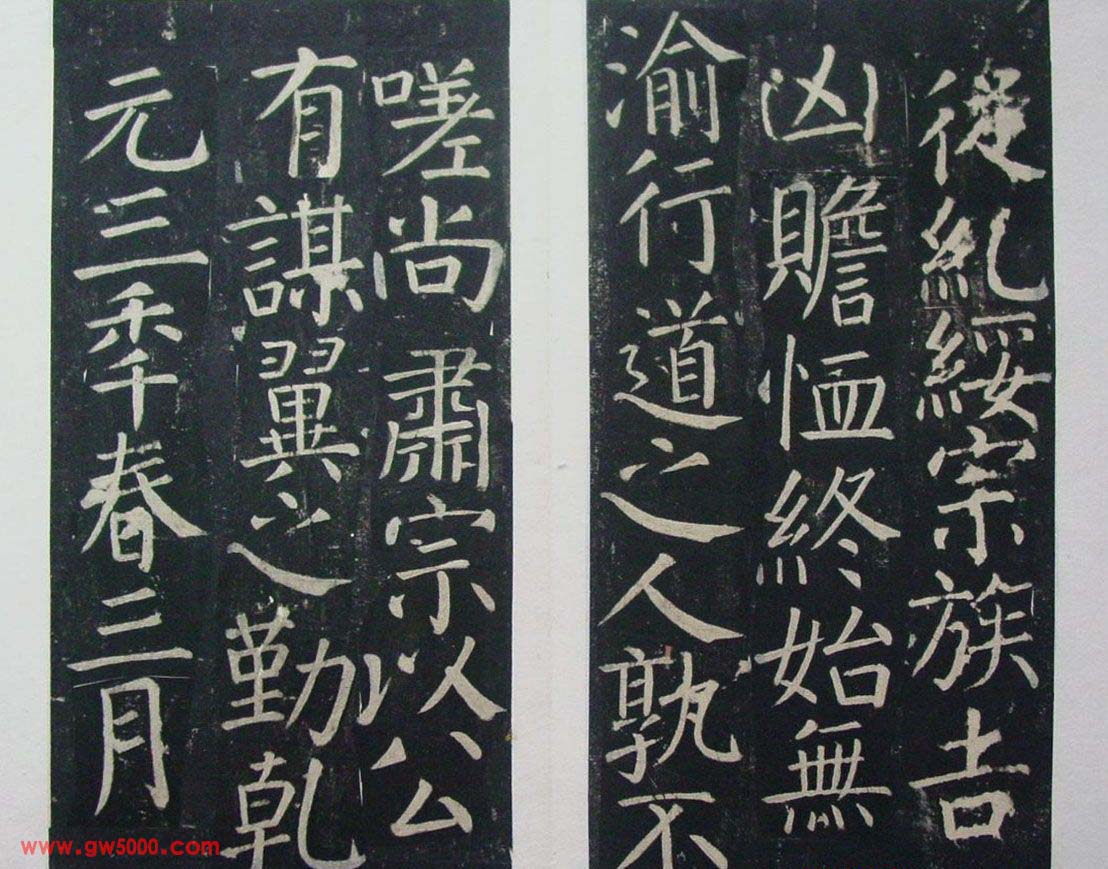 從糺綏宗族吉
凶贍恤終始無
渝行道之人孰不
嗟尚肅宗以公
有謀翼之勤乾
元三秊春三月
www.gw5000.com